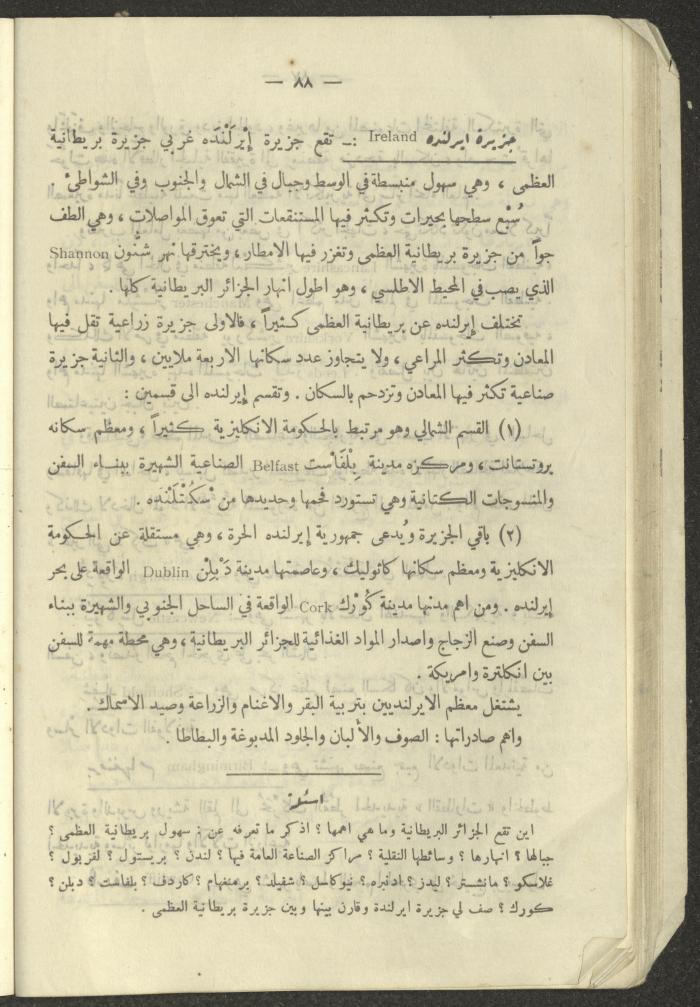 — ٨٨ —
جزيرة ايرلنده Ireland :ـ تقع جزيرة إِيْرلَنْدَه غربي جزيرة بريطانية
العظمى ، وهي سهول منبسطة في الوسط وجبال في الشمال والجنوب وفي الشواطئ .
سُبْع سطحها بحيرات وتكثر فيها المستنقعات التي تعوق المواصلات ، وهي الطف
جواً من جزيرة بريطانية العظمى وتغزر فيها الامطار ، ويخترقها نهر شنُّون Shannon
الذي يصب في المحيط الاطلسي ، وهو اطول انهار الجزائر البريطانية كلها .
تختلف إيرلنده عن بريطانية العظمى كثيراً ، فالاولى جزيرة زراعية تقل فيها
المعادن وتكثر المراعي ، ولا يتجاوز عدد سكانها الاربعة ملايين ، والثانية جزيرة
صناعية تكثر فيها المعادن وتزدحم بالسكان . وتقسم إيرلنده الى قسمين :
(١) القسم الشمالي وهو مرتبط بالحكومة الانكليزية كثيراً ، ومعظم سكانه
بروتستانت ، ومركزه مدينة بِلْفَاسْت Belfast الصناعية الشهيرة ببناء السفن
والمنسوجات الكتانية وهي تستورد فحمها وحديدها من سْكُتْلَنْدِه .
(٢) باقي الجزيرة ويُدعى جمهورية إيرلنده الحرة ، وهي مستقلة عن الحكومة
الانكليزية ومعظم سكانها كاثوليك ، وعاصمتها مدينة دَبْلِنْ Dublin الواقعة على بحر
إيرلنده . ومن اهم مدنها مدينة كُورْك Cork الواقعة في الساحل الجنوبي والشهيرة ببناء
السفن وصنع الزجاج واصدار المواد الغذائية للجزائر البريطانية ، وهي محطة مهمة للسفن
بين انكلترة وامريكة .
يشتغل معظم الايرلنديين بتربية البقر والاغنام والزراعة وصيد الاسماك .
واهم صادراتها : الصوف والألبان والجلود المدبوغة والبطاطا .
اسئلة
اين تقع الجزائر البريطانية وما هي اهمها ؟ اذكر ما تعرفه عن : سهول بريطانية العظمى ؟
جبالها ؟ انهارها ؟ وسائطها النقلية ؟ مراكز الصناعة العامة فيها ؟ لندن ؟ بريستول ؟ لفربول ؟
غلاسكو ؟ مانشستر ؟ ليدز ؟ ادنبره ؟ نيوكاسل ؟ شفيلد ؟ برمنغهام ؟ كاردف ؟ بلفاست ؟ دبلن ؟
كورك ؟ صف لي جزيرة ايرلندة وقارن بينها وبين جزيرة بريطانية العظمى .